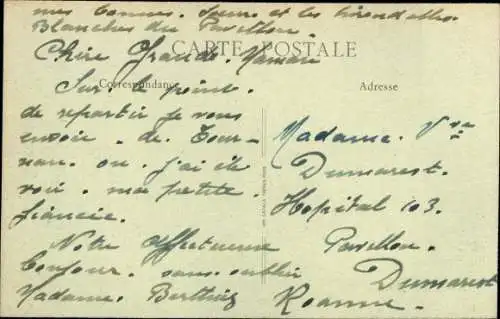 mes bonnes. Sœurs et les hirondelles
Blanches du Pavillon.
CARTE POSTALE
Chère Grande. Maman
Correspondance
Adresse
Sur le point.
de repartir je vous
envoie. de Tour-
nan. ou. j'ai été
voir. ma petite.
fiancée.
Notre affectueuse
bonjour. sans oublier
Madame.
Madame. Vve
Dumarest.
Hopital 103.
Pavillon.
Dumarest
Roanne.